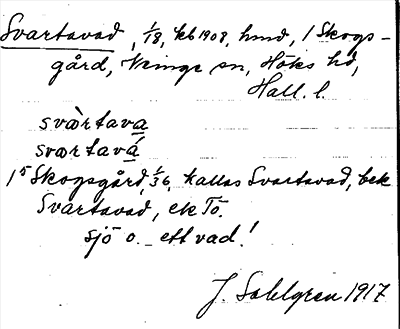 Svartavad, 1/8, kb 1908, hmd, 1 Skogs-
gård, Veinge sn, Höks hd,
Hall. l.
svàrtava
svartavá
1⁵ Skogsgård, 1/36, kallas Svartavad, bek
Svartavad, ek To.
sjö o. ett vad!
J. Sahlgren 1917